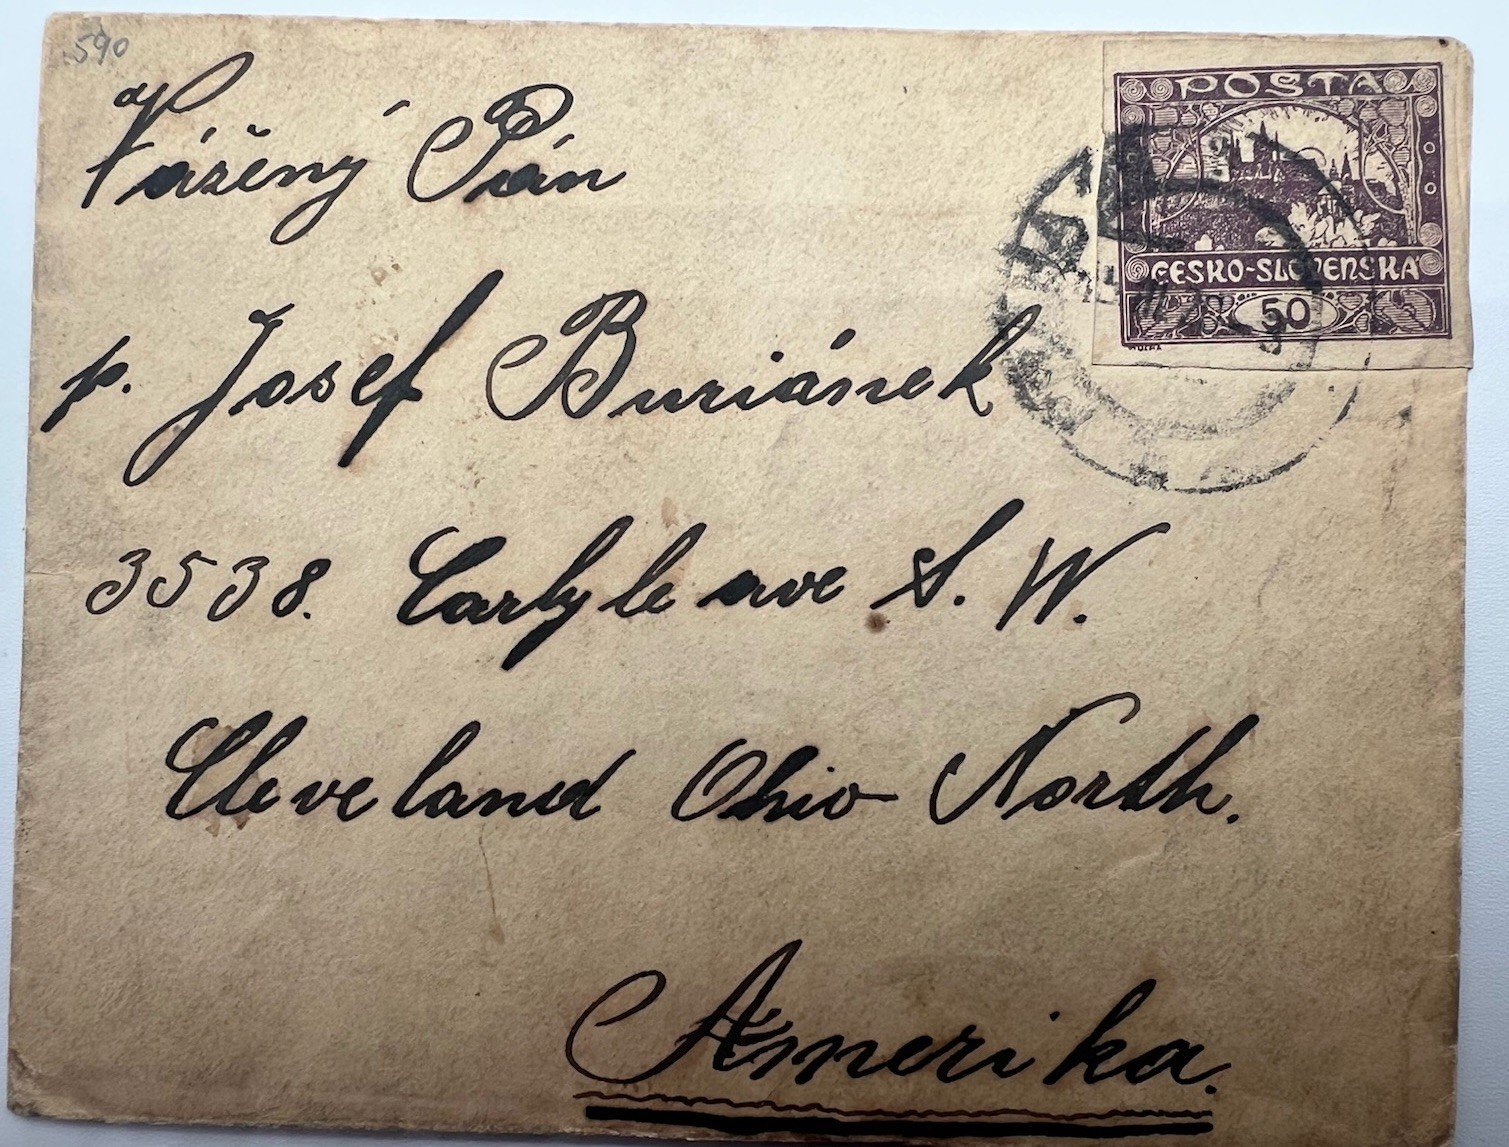 590
Vážený Pán
p. Josef Buriánek
3538. Carlyle ave S. W.
Cleveland Ohio North.
Amerika.
POŠTA
ČESKO-SLOVENSKÁ
50
MUCHA